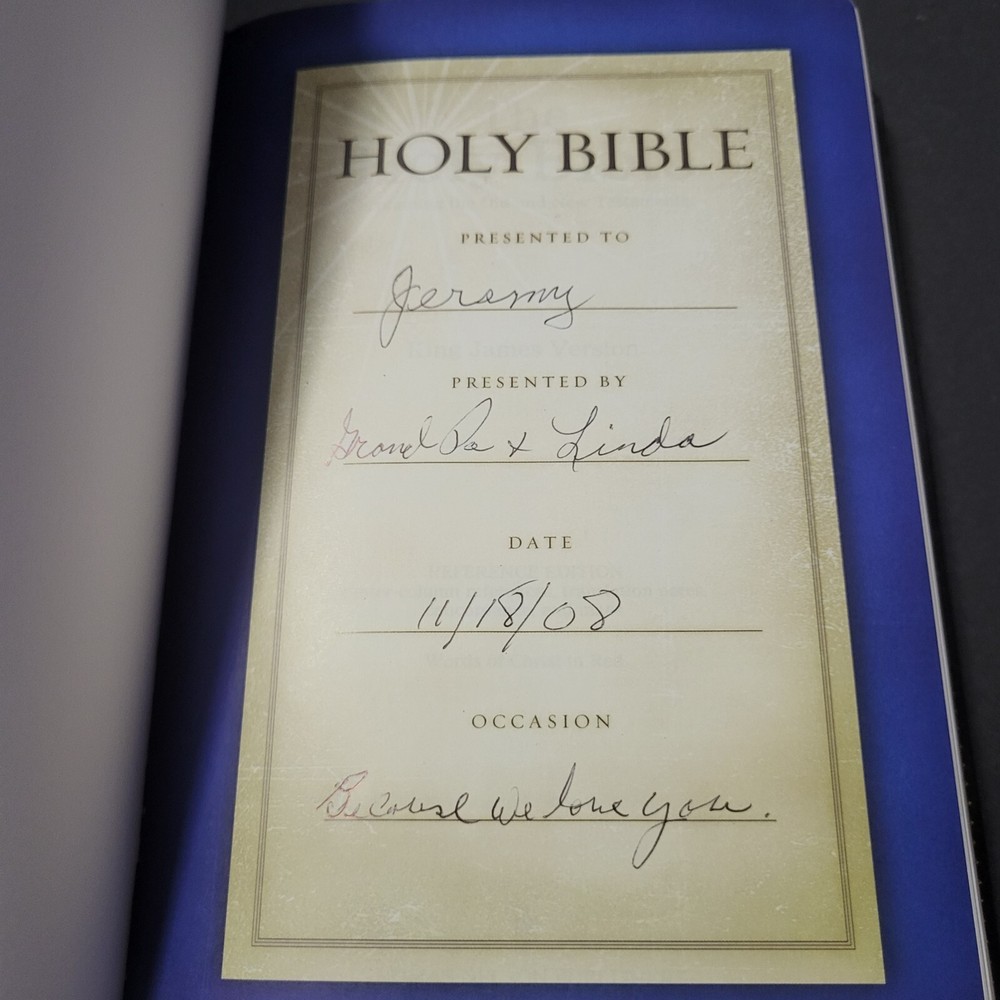 HOLY BIBLE
PRESENTED TO
Jeramy
PRESENTED BY
Grand Pa + Linda
DATE
11/18/08
OCCASION
Because We love you.